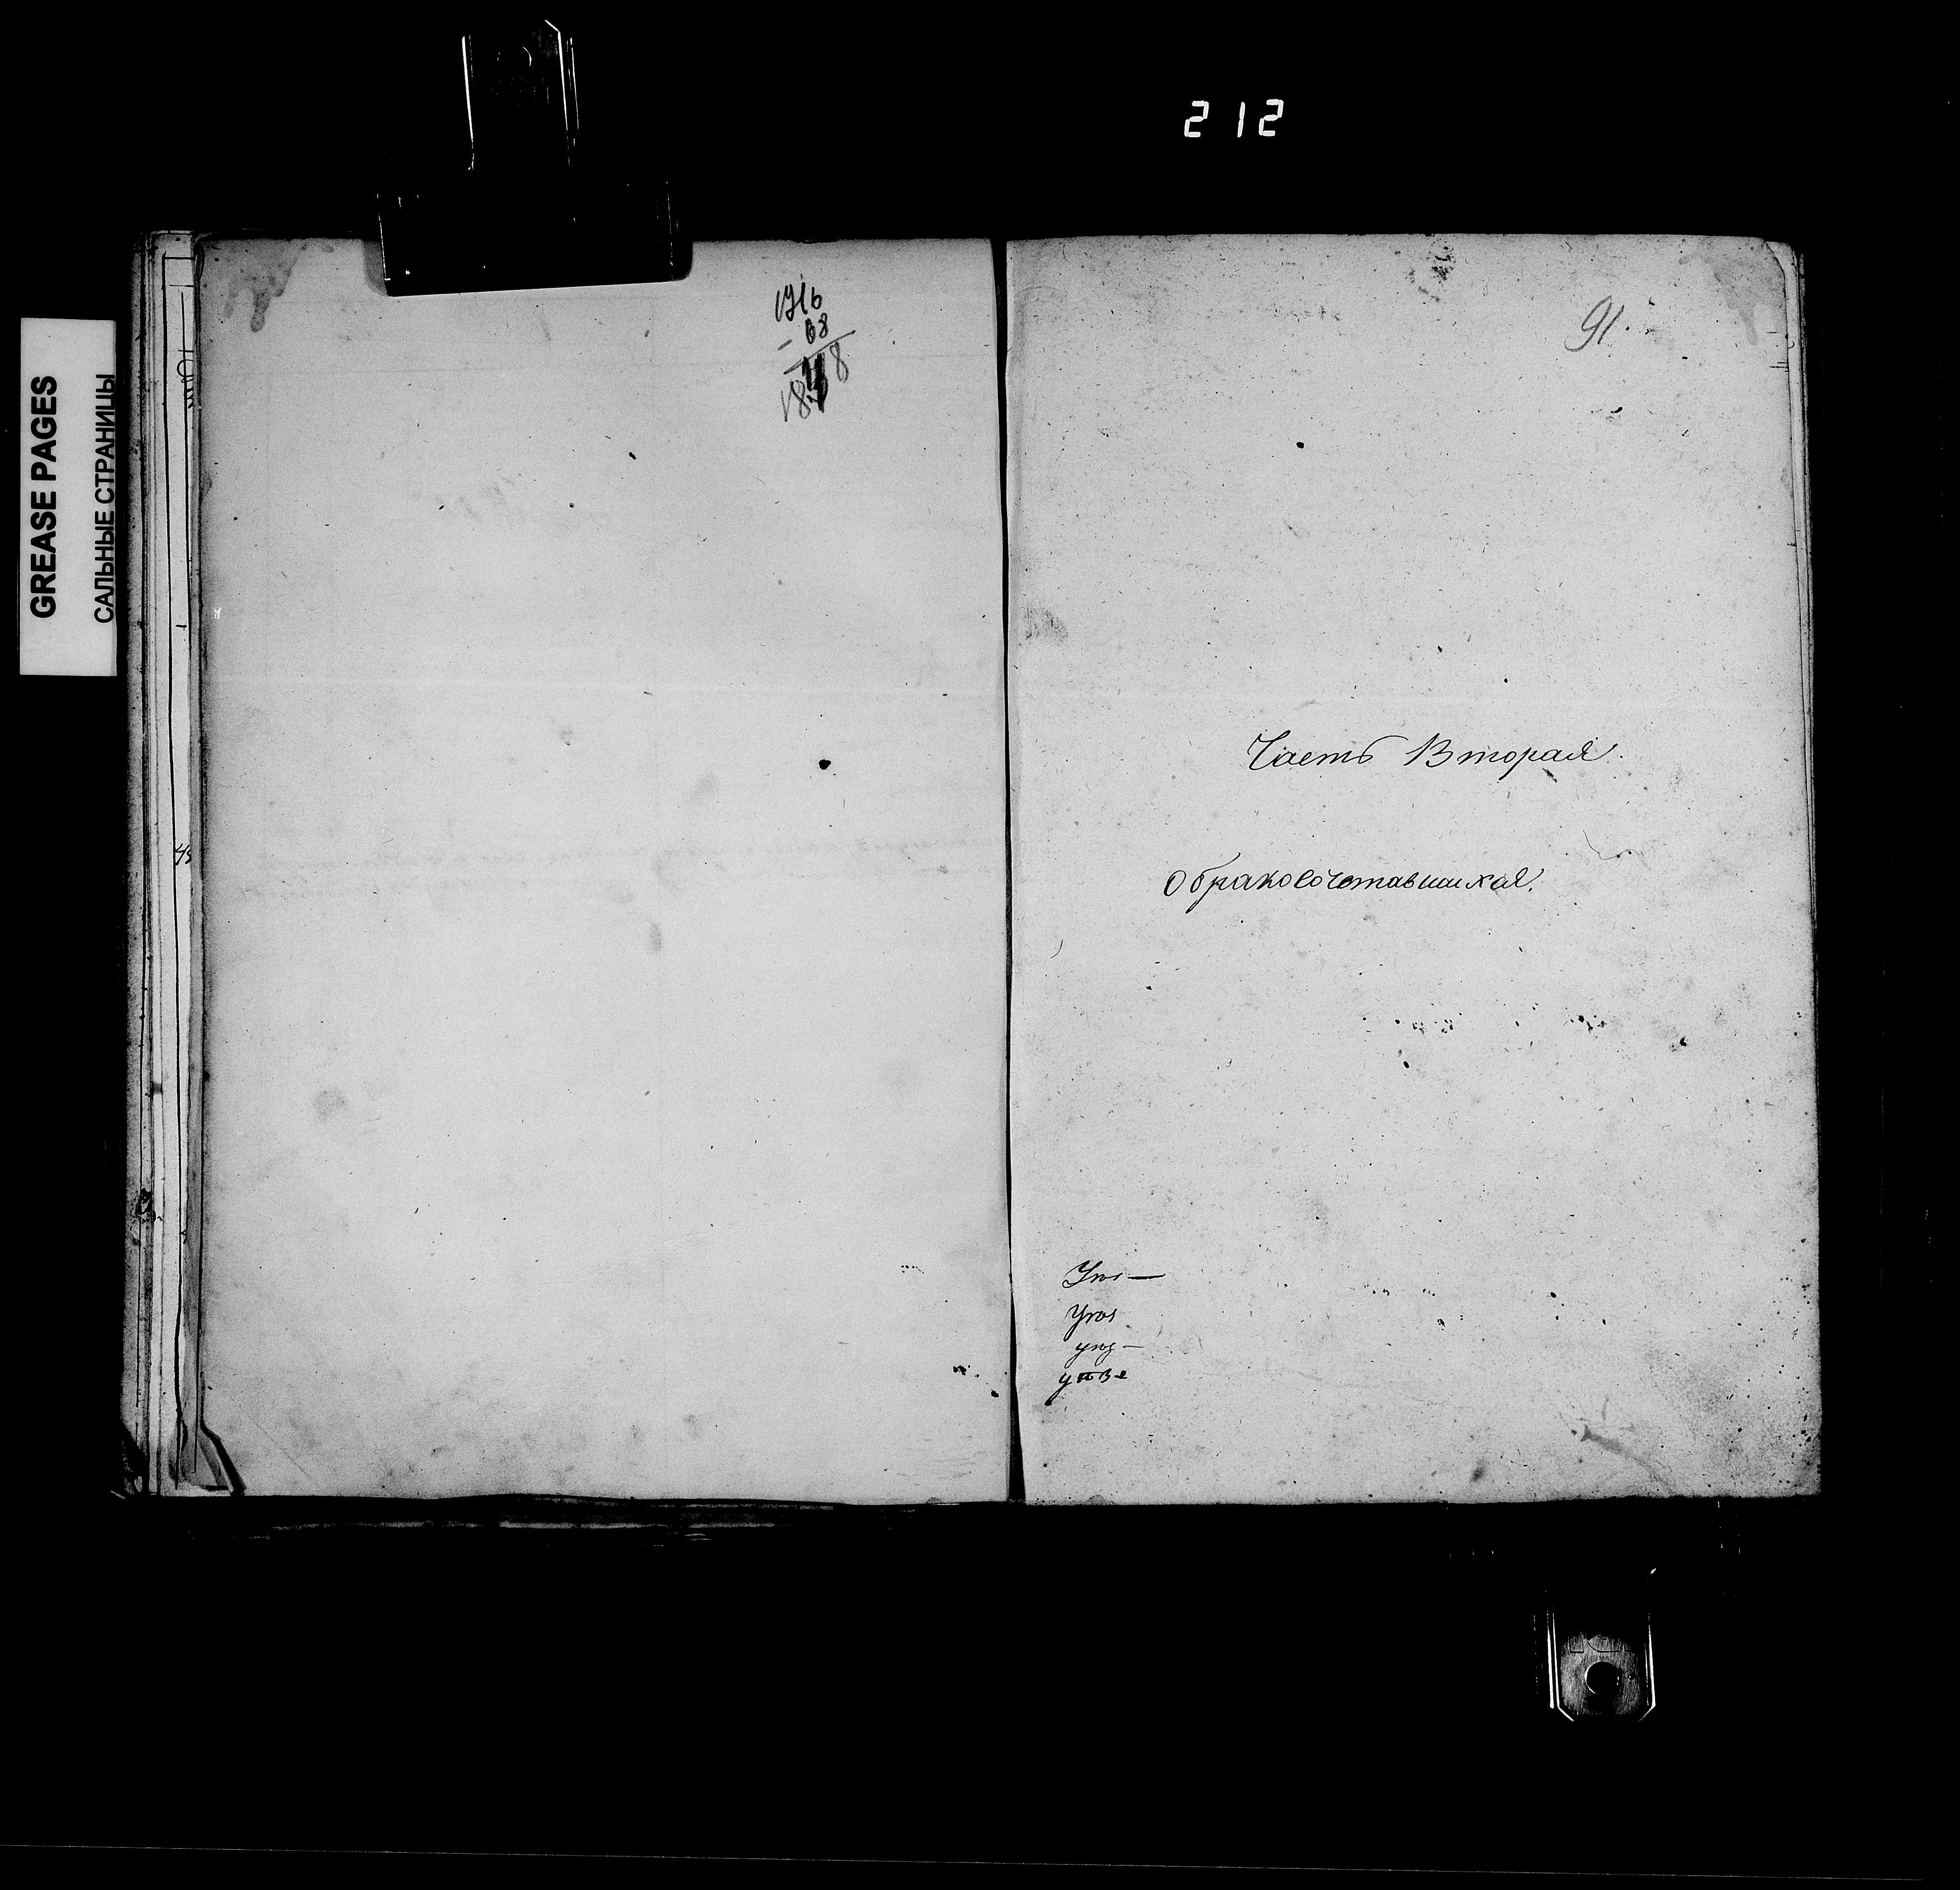 212
GREASE PAGES
САЛЬНЫЕ СТРАНИЦЫ
1916
- 68
18 8
91.
Часть Вторая.
о бракосочетавшихся.